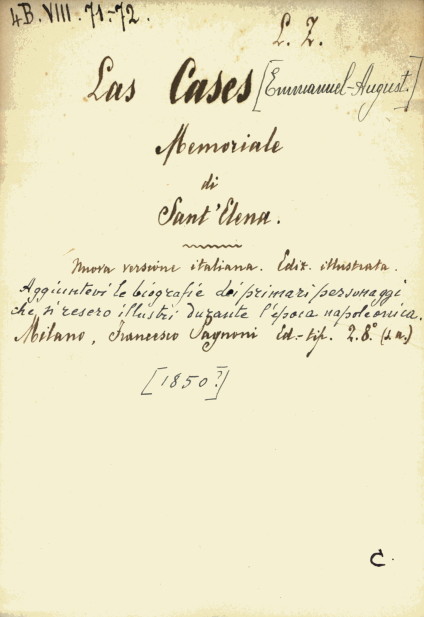 4B. VIII. 71-72.
L. Z.
Las Cases [Emmanuel-August.]
Memoriale
di
Sant'Elena.
Nuova versione italiana. Ediz. illustrata.
Aggiuntevi le biografie dei primari personaggi
che si resero illustri durante l'época napoleonica.
Milano, Francesco Pagnoni Ed.-tip. 2. 8.° (s. a.)
[1850?]
C.